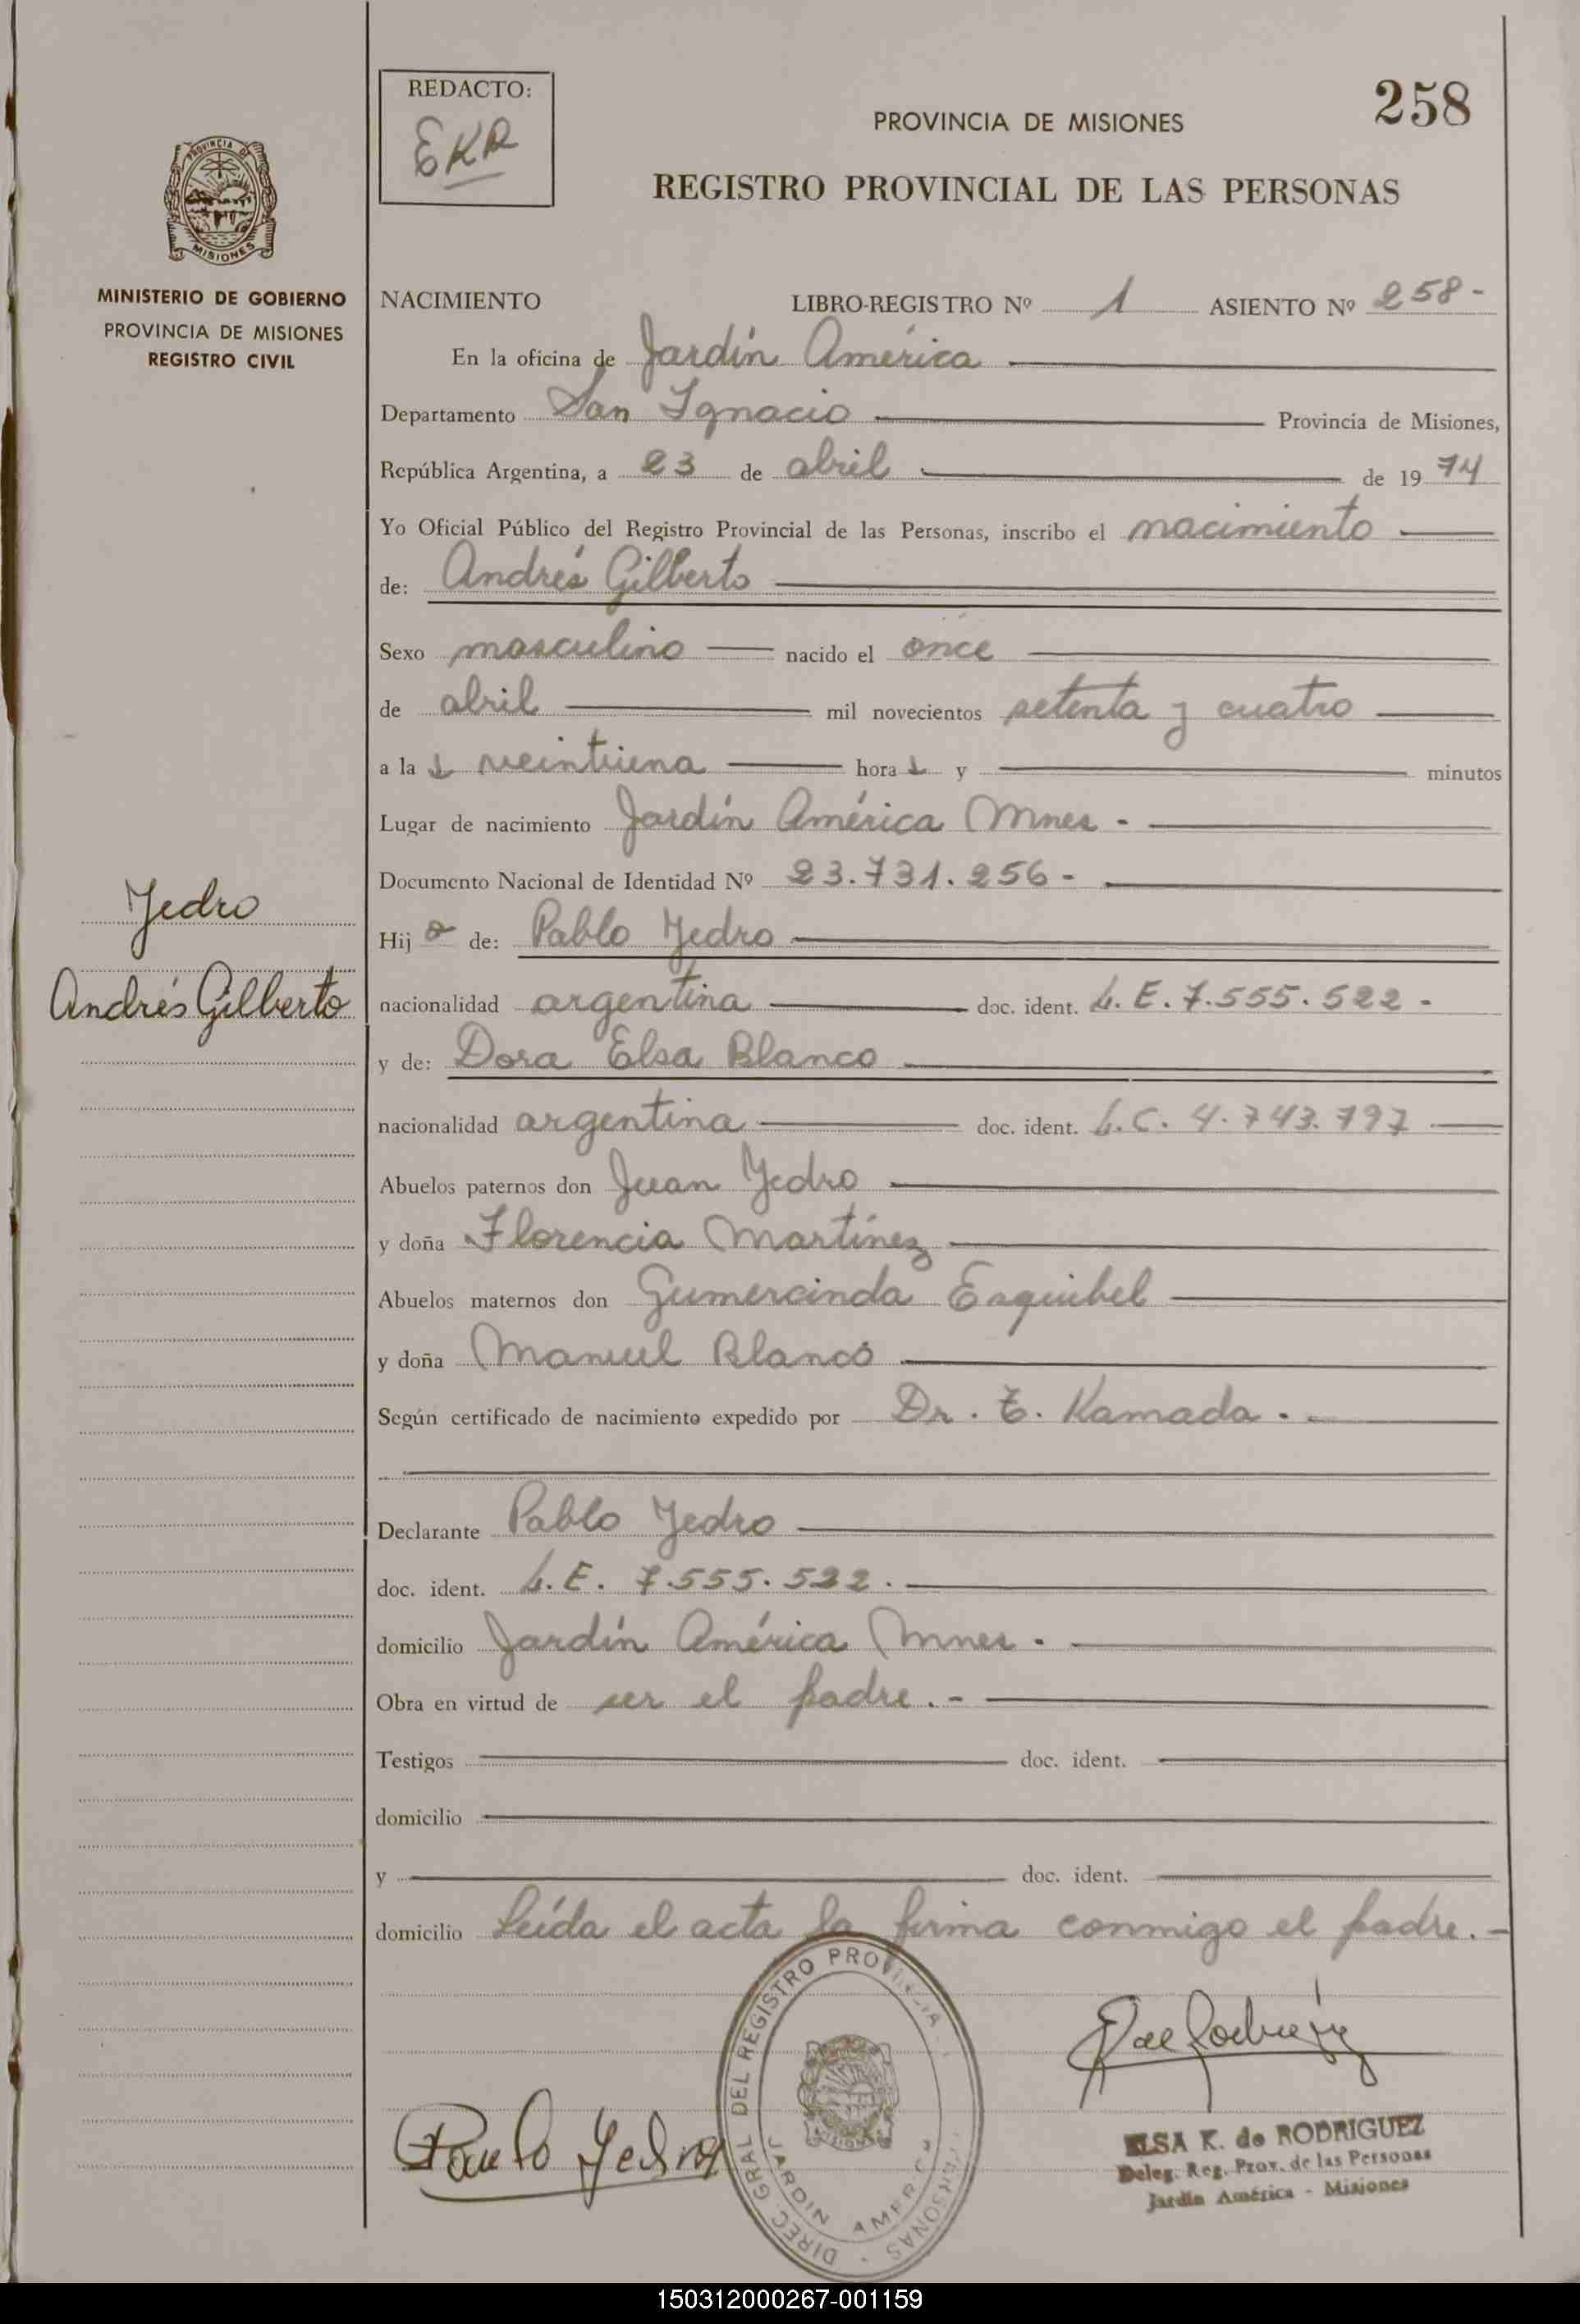 REDACTO:
EKR
258
PROVINCIA DE MISIONES
REGISTRO PROVINCIAL DE LAS PERSONAS
PROVINCIA DE
MISIONES
MINISTERIO DE GOBIERNO
PROVINCIA DE MISIONES
REGISTRO CIVIL
NACIMIENTO LIBRO-REGISTRO Nº 1 ASIENTO Nº 258-
En la oficina de Jardín América
Departamento San Ignacio Provincia de Misiones,
República Argentina, a 23 de abril de 1974
Yo Oficial Público del Registro Provincial de las Personas, inscribo el nacimiento
de: Andrés Gilberto
Sexo masculino nacido el once
de abril mil novecientos setenta y cuatro
a las veintiuna horas y minutos
Lugar de nacimiento Jardín América Mnes -
Documento Nacional de Identidad Nº 23.731.256-
Yedro
Andrés Gilberto
Hijo de: Pablo Yedro
nacionalidad argentina doc. ident. L.E. 7.555.522-
y de: Dora Elsa Blanco
nacionalidad argentina doc. ident. L.C. 4.743.797
Abuelos paternos don Juan Yedro
y doña Florencia Martínez
Abuelos maternos don Gumercinda Esquibel
y doña Manuel Blanco
Según certificado de nacimiento expedido por Dr. T. Kamada.
Declarante Pablo Yedro
doc. ident. L.E. 7.555.522.
domicilio Jardín América Mnes.
Obra en virtud de ser el padre.-
Testigos doc. ident.
domicilio
y doc. ident.
domicilio Leída el acta la firma conmigo el padre.-
DIREC. GRAL DEL REGISTRO PROVINCIAL PERSONAS
JARDIN AMERICA
Pablo Yedro
ELSA K. de RODRIGUEZ
Deleg. Reg. Prov. de las Personas
Jardín América - Misiones
150312000267-001159